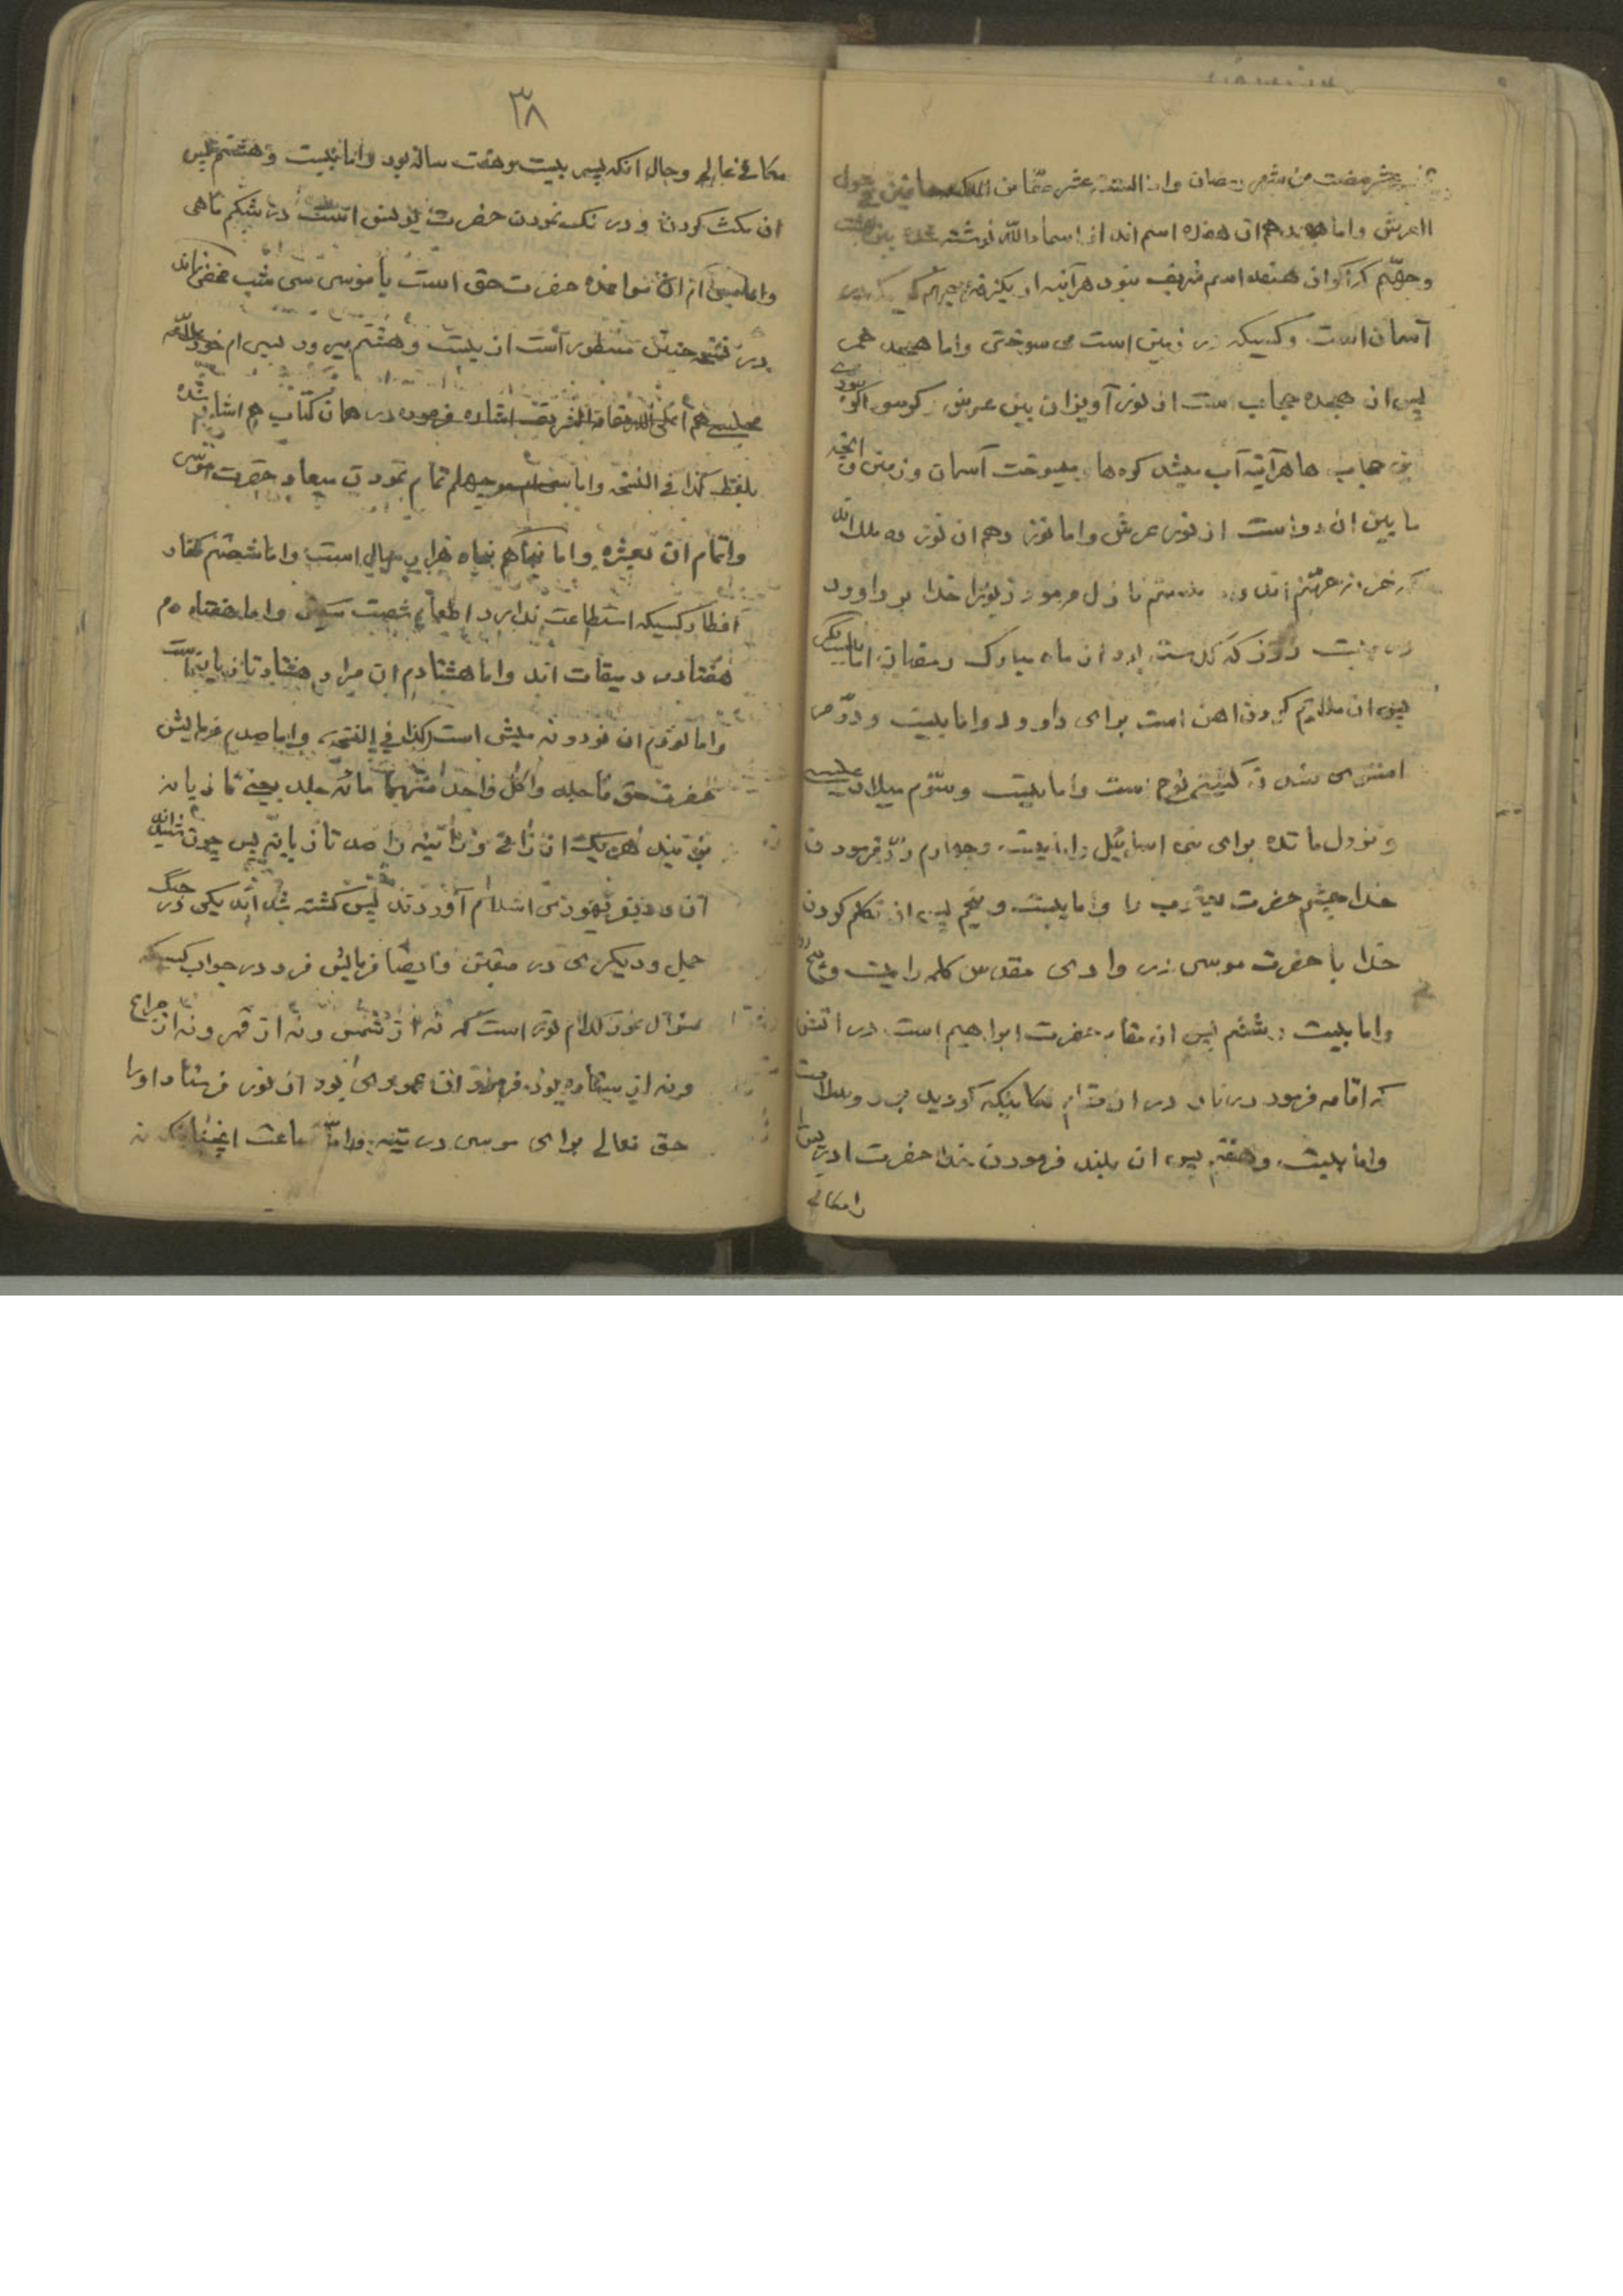 عشر مضت من شهر رمضان واما الستة عشر صفا من الملئكة حافين حول
العرش واما هفدهم ان هفده اسم اند از اسماء الله نوشته شده بین بهشت
وجهنم که اگر ان هفده اسم شریف نبود هر آینه
آسمان است وکسیکه در زمین است می سوختی واما هجدهم
پس ان هجده حجاب است از نور آویزان بین عرش وکرسی اگر نبودی
این حجاب ها هر آینه آب میشد کوه ها میسوخت آسمان وزمین وانچه
ما بین ان دو است از نور عرش واما نوزدهم ان نوزده ملک اند
که خزنه جهنم اند واما بیستم نازل فرمود زبور را خدا بر داوود
در بیست روز که گذشته بود از ماه مبارک رمضان اما بیست ویک
پس ان ملایم کردن اهن است برای داوود واما بیست ودوم
استوی شدن کشتی نوح است واما بیست وسوم میلاد عیسی
ونزول مائده برای بنی اسرائیل واما بیست وچهارم رد فرمودن
خدا چشم حضرت یعقوب را واما بیست وپنجم پس ان تکلم کردن
خدا با حضرت موسی در وادی مقدس کلمه را بیست وپنج
واما بیست وششم پس ان مقام حضرت ابراهیم است در اتش
که اقامه فرمود در نار در ان مقام مکانیکه گردید برد وسلامت
واما بیست وهفتم پس ان بلند فرمودن خدا حضرت ادریس
را مکانی
۳۸
مکانی عالی وحال انکه پسر بیست وهفت ساله بود واما بیست وهشتم پس
ان مکث کردن ودرنک نمودن حضرت یونس است در شکم ماهی
واما سی ام ان مواعده حضرت حق است با موسی سی شب مخفی نماند
در نسخه چنین مسطور است از بیست وهشتم میرود بسی ام خود علامه
مجلسی هم اعلی الله مقامه الشریف اشاره فرموده در همان کتاب هم اشاره شده
بلفظ کذا فی النسخه واما چهلم تمام نمودن میعاد حضرت موسی
واتمام ان بعشره واما پنجاهم پنجاه هزار سال است واما شصتم کفاره
افطار کسیکه استطاعت ندارد اطعام شصت مسکین واما هفتادم
هفتاد مرد میقات اند واما هشتادم ان مراد هشتاد تازیانه است
واما نودم ان نود ونه میش است کذا فی النسخه واما صدم فرمایش
حضرت حق فاجلدوا کل واحد منهما مائه جلده یعنی تازیانه
بزنید هر یک از زانی وزانیه را صد تازیانه پس چون شنیدند
ان دو نفر یهودی اسلام آوردند پس کشته شدند یکی در جنگ
جمل ودیکری در صفین وایضا فرمایش فرمود در جواب کسیکه
سئوال نمود کدام نور است که نه از شمس ونه از قمر ونه از چراغ
ونه از ستاره بود فرمود ان عمودی بود از نور فرستاد اورا
حق تعالی برای موسی در تیه واما ساعت